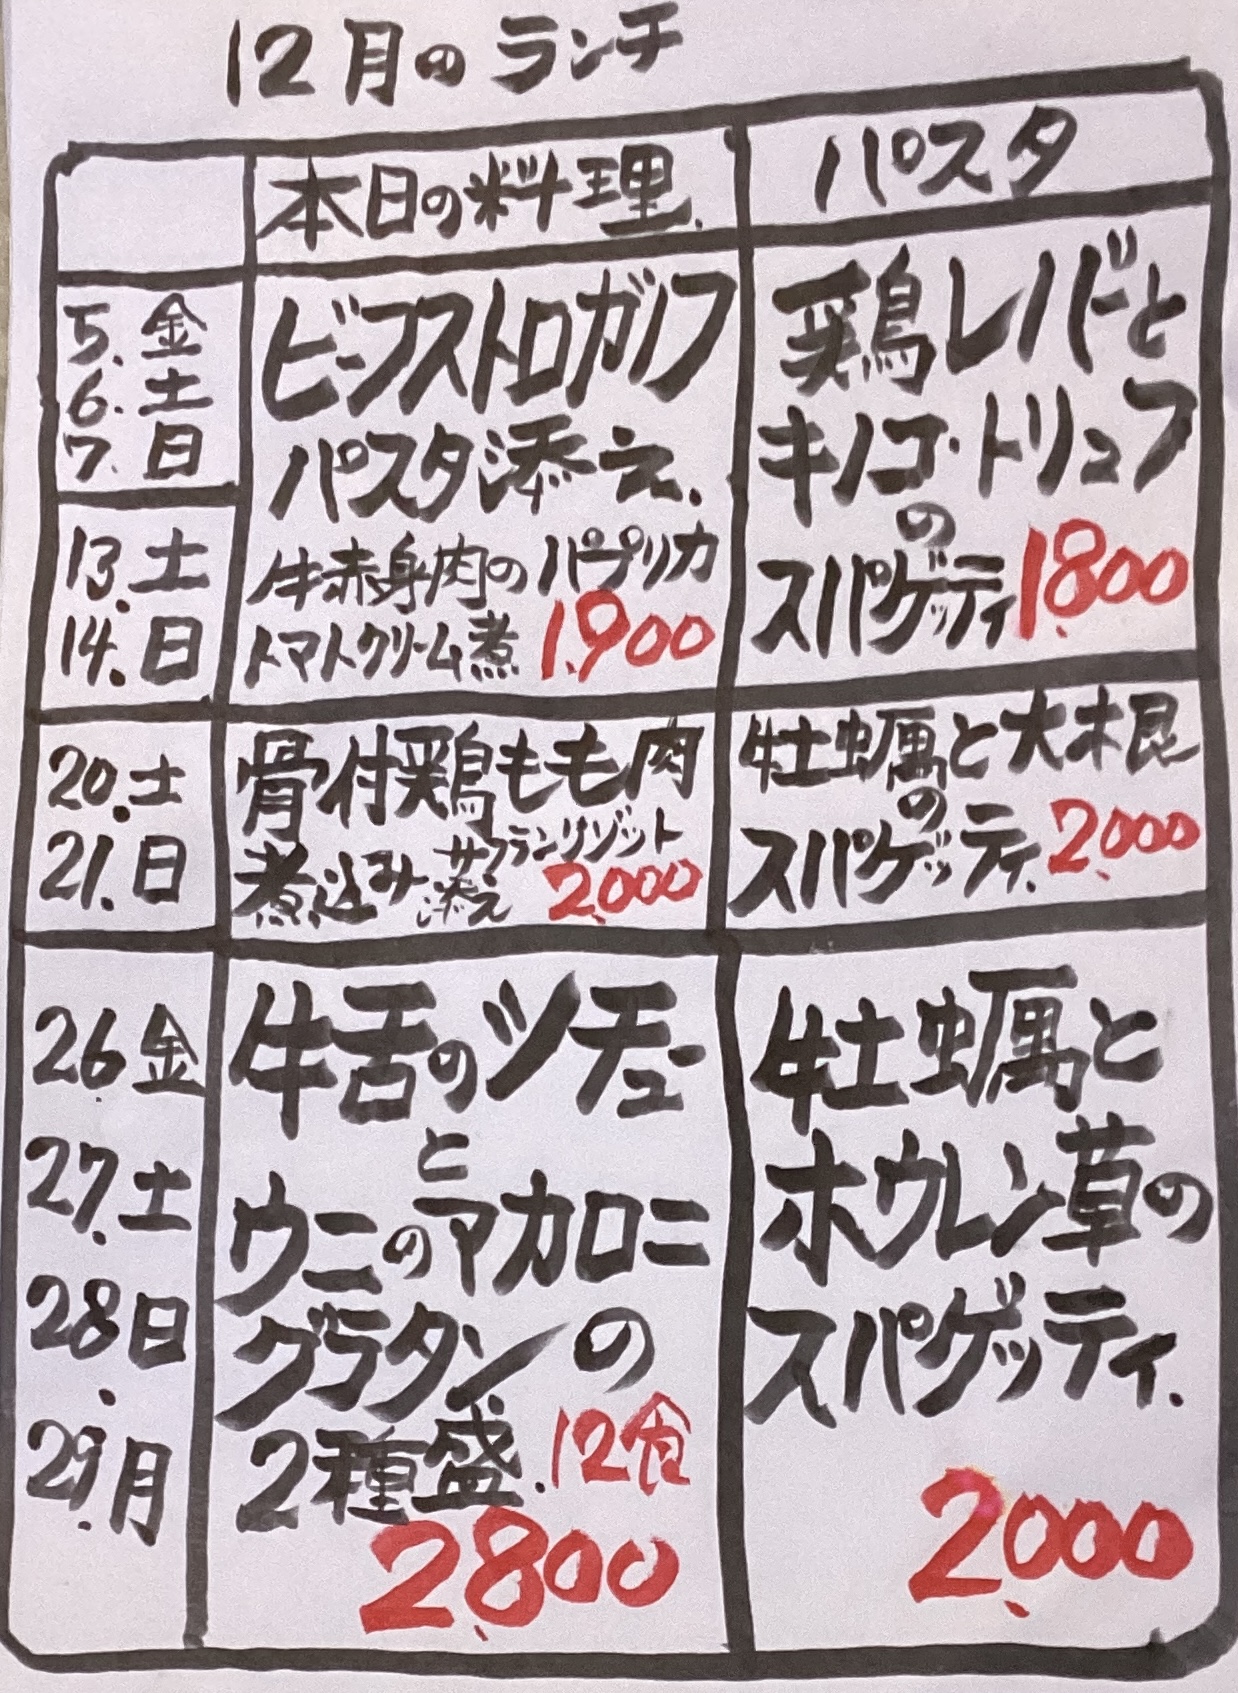 12月のランチ
本日の料理.
パスタ
5. 金
6. 土
7. 日
13. 土
14. 日
ビーフストロガノフ
パスタ添え.
牛赤身肉のパプリカ
トマトクリーム煮 1,900
鶏レバーと
キノコ・トリュフ
の
スパゲッティ 1,800
20. 土
21. 日
骨付鶏もも肉
煮込み サフランリゾット
添え 2,000
牡蠣と大根
の
スパゲッティ. 2,000
26. 金
27. 土
28. 日
29. 月
牛舌のシチュー
と
ウニのマカロニ
グラタンの
2種盛. 12食
2,800
牡蠣と
ホウレン草の
スパゲッティ.
2,000